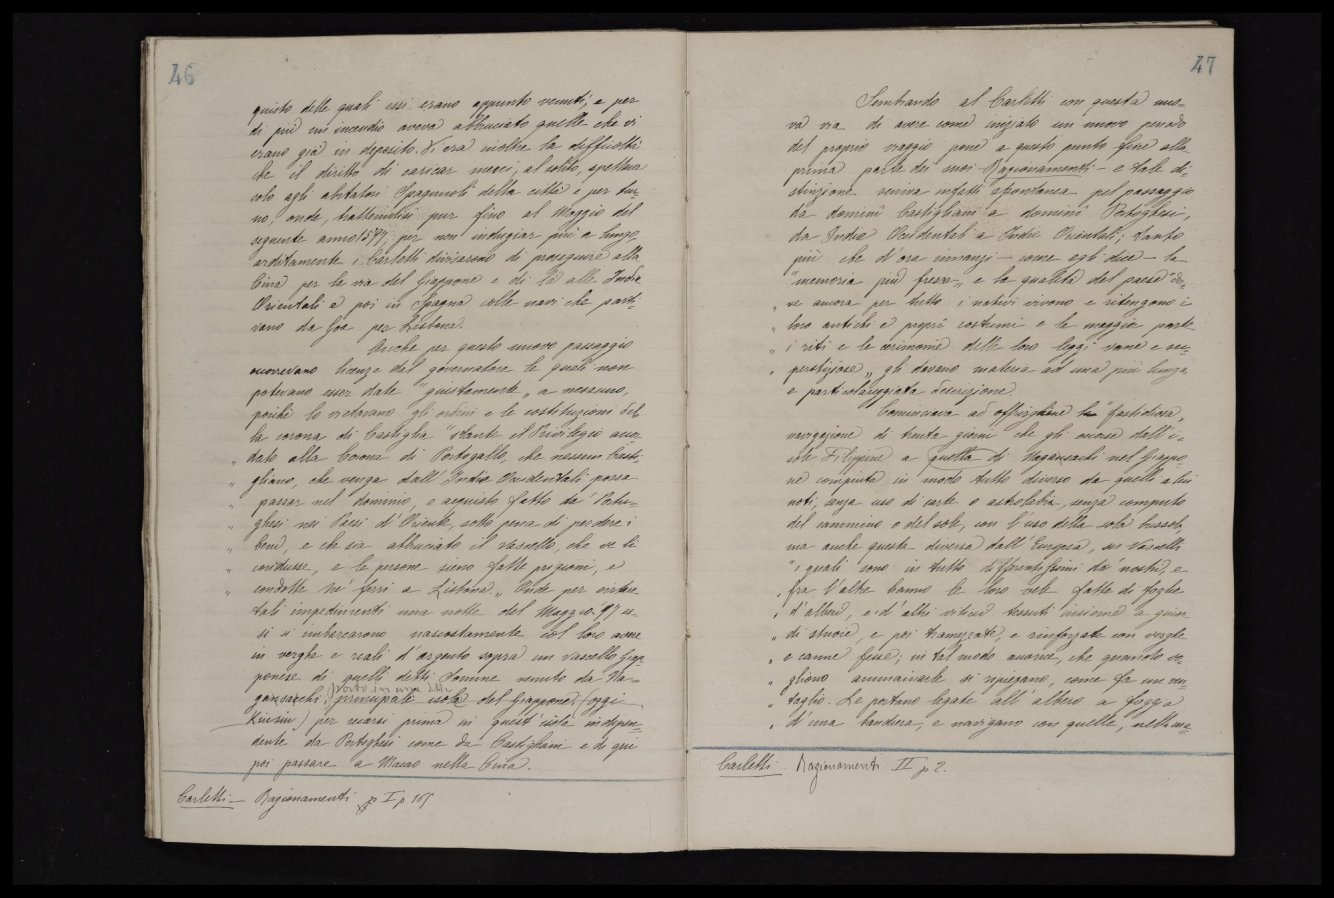 46
quisto delle quali essi erano appunto venuti; e per
di più un incendio aveva abbruciato quelle che vi
erano già in deposito. V'era inoltre la difficoltà
che il diritto di caricar merci, al solito, spettava
solo agli abitatori Spagnuoli della città e per tur-
no, onde, trattenutisi pur fino al Maggio del
seguente anno 1597, per non indugiar più a lungo
arditamente i Carletti divisarono di proseguire alla
Cina per la via del Giappone e di là alle Indie
Orientali e poi in Spagna colle navi che parti-
vano da Goa per Lisbona.
Anche per questo nuovo passaggio
occorrevano licenze dal governatore le quali non
potevano esser date "giustamente„ a nessuno,
poichè lo vietavano gli ordini e le costituzioni del-
la corona di Castiglia "stante il Privilegio accor-
„ dato alla Corona di Portogallo, che nessun Casti-
„ gliano, che venga dall'Indie Occidentali possa
„ passar nel dominio, e acquisto fatto da' Portu-
„ ghesi nei Paesi d'Oriente, sotto pena di perdere i
„ beni, e che sia abbruciato il vascello, che ve li
„ condusse, e le persone sieno fatte prigioni, e
„ condotte ne' ferri a Lisbona„. Onde per evitare
tali impedimenti una notte del Maggio 97 es-
si si imbarcarono nascostamente col loro avere
in verghe e reali d'argento sopra un vascello Giap-
ponese di quelli detti Somme venuto da Na-
porto in una delle
gansacchi, principale isola del Giappone (oggi
Kiusiu) per recarsi prima in quest'isola indipen-
dente da Portoghesi come da Castigliani e di qui
poi passare a Macao nella Cina.
Carletti – Ragionamenti p I p
47
Sembrando al Carletti con questa nuo-
va via di avere come iniziato un nuovo periodo
del proprio viaggio pone a questo punto fine alla
prima parte dei suoi Ragionamenti – e tale di-
stinzione veniva infatti spontanea pel passaggio
da domini Castigliani a domini Portoghesi,
da Indie Occidentali a Indie Orientali; tanto
più che d'ora innanzi – come egli dice – la
"memoria più fresca„ e la qualità del paese "do-
„ ve ancora per tutto i nativi vivono e ritengono i
„ loro antichi e propri costumi e la maggior parte
„ i riti e le cerimonie delle loro leggi vane e su-
„ perstiziose„ gli davano materia ad una più lunga
e particolareggiata descrizione.
Cominciava ad la "fastidiosa„
navigazione di trenta giorni che gli occorse dall'i-
sole Filippine a quella di Nagansachi nel Giappo-
ne compiuta in modo tutto diverso da quelli a lui
noti, senza uso di carte o astrolabio, senza computo
del cammino o del sole, con l'uso della sola bussola,
ma anche questa diversa dall'Europea, su Vascelli
"i quali sono in tutto differentissimi da' nostri, e
„ fra l'altre hanno le loro vele fatte di foglie
„ d'alberi, e d'altri vitimi tessuti insieme a guisa
„ di stuoie, e poi tramezzate, e rinforzate con verghe
„ e canne fesse; in tal modo avorce, che quando vo-
„ gliono ammainarle si ripiegano, come fa un ven-
„ taglio. Le portano legate all'albero a foggia
„ d'una bandiera, e navigano con quelle, nettame-
Carletti Ragionamenti II p 2.